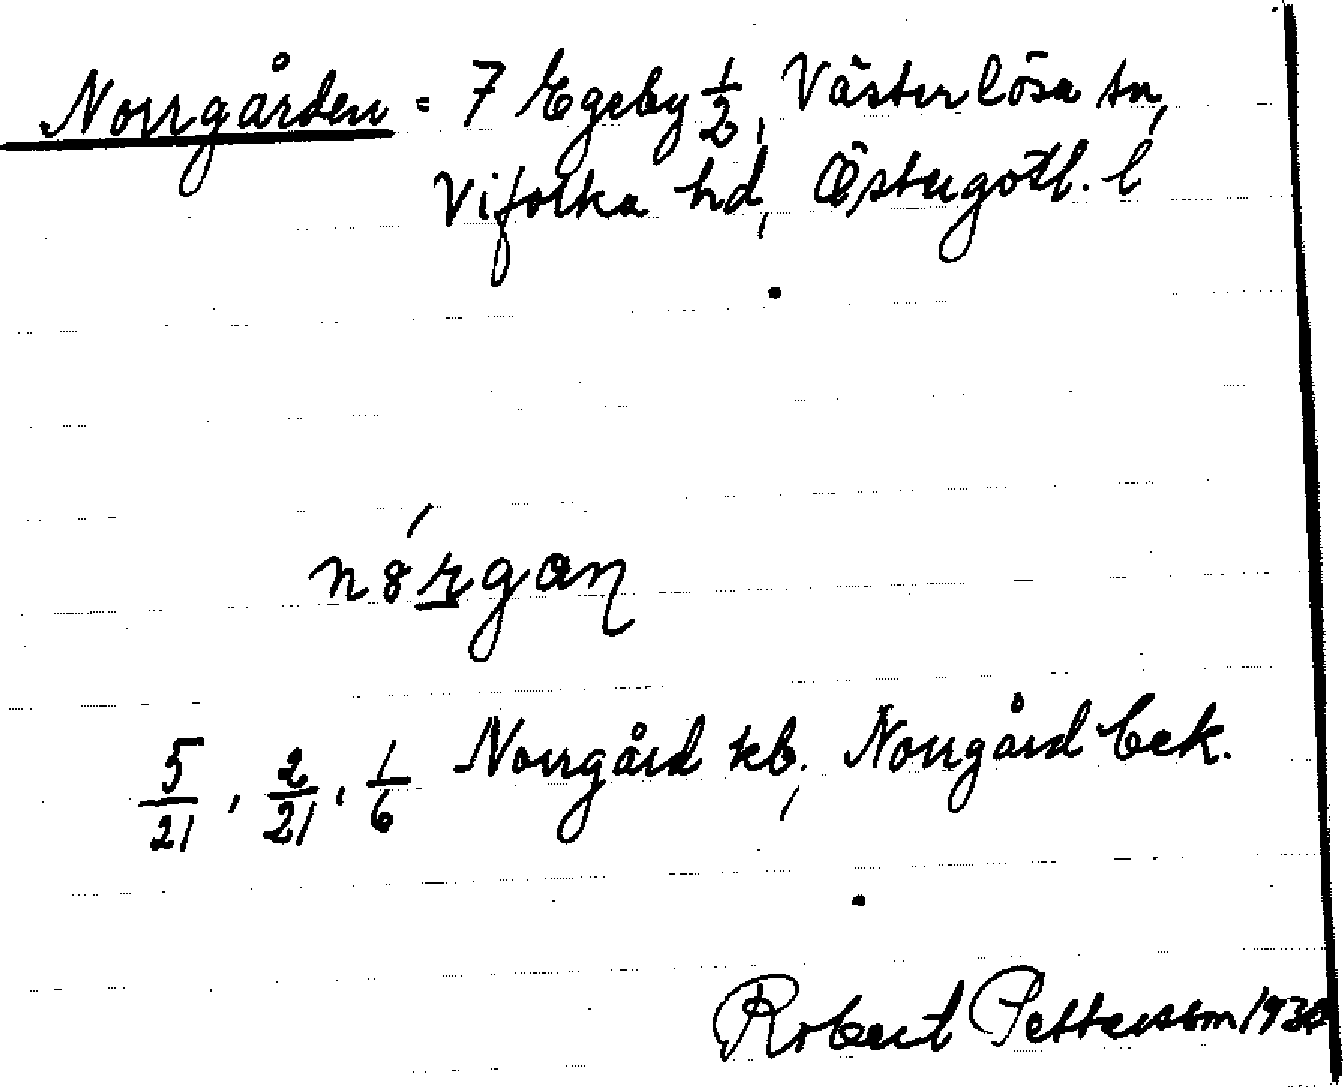 Norrgården = 7 Egeby 1/2, Västerlösa sn,
Vifolka hd, Östergötl. l
n8́rgan
5/21, 2/21, 1/6 Norrgård kb, Norrgård bek.
Robert Pettersson 1930